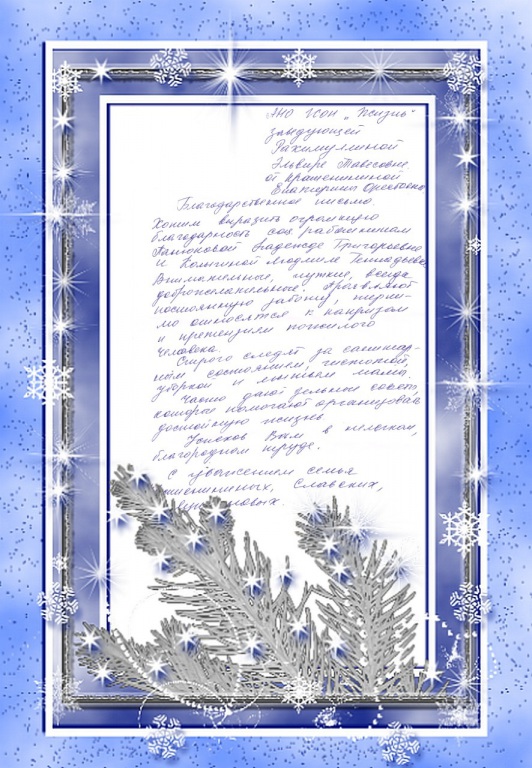 АНО СОН „Жизнь"
заведующей
Рахимуллиной
Эльвире Тависовне
от Крашениной
Екатерины
Благодарственное письмо.
Хотим выразить огромную
благодарность соц. работникам
Надежде Григорьевне
и Людмиле Геннадьевне
Внимательные, чуткие, всегда
доброжелательные. Проявляют
постоянную заботу, терпи-
мо относятся к капризам
и претензиям пожилого
человека.
Строго следят за санитар-
ным состоянием, чистотой,
уборкой и мытьем мамы.
Часто дают дельные советы,
которые помогают организовать
достойную жизнь.
Успехов Вам в нелегком,
благородном труде.
С уважением семья
Славских,